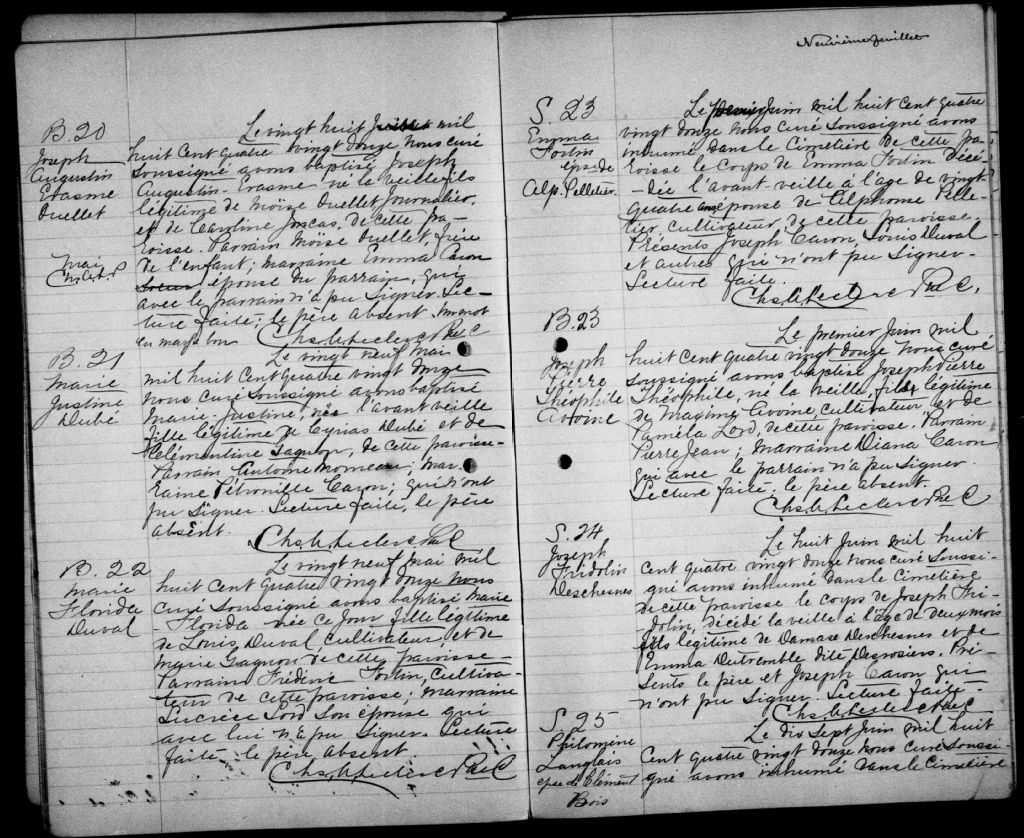 B. 20
Joseph
Augustin
Erasme
Ouellet
mai
Ch. A. L. P.
Le vingt huit Juillet mil
huit cent quatre vingt douze nous curé
soussigné avons baptisé Joseph
Augustin-Erasme né la veille fils
légitime de Moïse Ouellet Journalier,
et de Caroline Joncas, de cette pa-
roisse. Parrain Moïse Ouellet, frère
de l'enfant; marraine Emma Caron
Soeur épouse du parrain, qui
avec le parrain n'a pu signer. Lec-
ture faite; le père absent. un mot
en marge bon Chs. A. Leclerc Ptre C
B. 21
Marie
Justine
Dubé
Le vingt neuf mai
mil huit cent quatre vingt douze
nous curé soussigné avons baptisé
Marie-Justine, née l'avant veille
fille légitime de Cyrias Dubé et de
Clémentine Gagnon, de cette paroisse-
Parrain Antoine Morneau; mar-
raine Pétronille Caron; qui n'ont
pu signer. Lecture faite, le père
absent. Chs. A. Leclerc Ptre C
B. 22
Marie
Florida
Duval
Le vingt neuf mai mil
huit cent quatre vingt douze nous
curé soussigné avons baptisé Marie
Florida née ce jour fille légitime
de Louis Duval, cultivateur, et de
Marie Gagnon de cette paroisse
Parrain Frédéric Fortin, cultiva-
teur de cette paroisse; marraine
Lucrèce Lord son épouse qui
avec lui n'a pu signer. Lecture
faite le père absent
Chs. A. Leclerc Ptre C
Neuvième feuillet
S. 23
Emma
Fortin
eps. de
Alp. Pelletier.
Le premier Juin mil huit cent quatre
vingt douze nous curé soussigné avons
inhumé dans le cimetière de cette pa-
roisse le corps de Emma Fortin décé-
dée l'avant-veille à l'âge de vingt-
quatre ans épouse de Alphonse Pelle-
tier, cultivateur, de cette paroisse.
Présents Joseph Caron, Louis Duval
et autres qui n'ont pu signer-
Lecture faite.
Chs. A. Leclerc Ptre C.
B. 23
Joseph
Pierre
Théophile
Avoine
Le premier Juin mil
huit cent quatre vingt douze nous curé
soussigné avons baptisé Joseph Pierre
Théophile, né la veille, fils légitime
de Maxime Avoine cultivateur, et de
Paméla Lord, de cette paroisse. Parrain
Pierre Jean; marraine Diana Caron
qui avec le parrain n'a pu signer.
Lecture faite; le père absent.
Chs. A. Leclerc Ptre C
S. 24
Joseph
Fridolin
Deschesnes
Le huit Juin mil huit
cent quatre vingt douze nous curé soussi-
gné avons inhumé dans le cimetière
de cette paroisse le corps de Joseph Fri-
dolin, décédé la veille à l'âge de deux mois
fils légitime de Damase Deschesnes et de
Emma Dutremble dite Desrosiers. Pré-
sents le père et Joseph Caron qui
n'ont pu signer. Lecture faite-
Chs. A. Leclerc Ptre C
S. 25
Philomène
Langlais
epse de Clément
Bois
Le dix sept Juin mil huit
cent quatre vingt douze nous curé soussi-
gné avons inhumé dans le cimetière